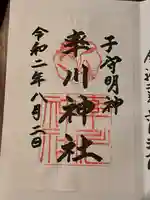 子守明神
率川神社
令和二年八月二日